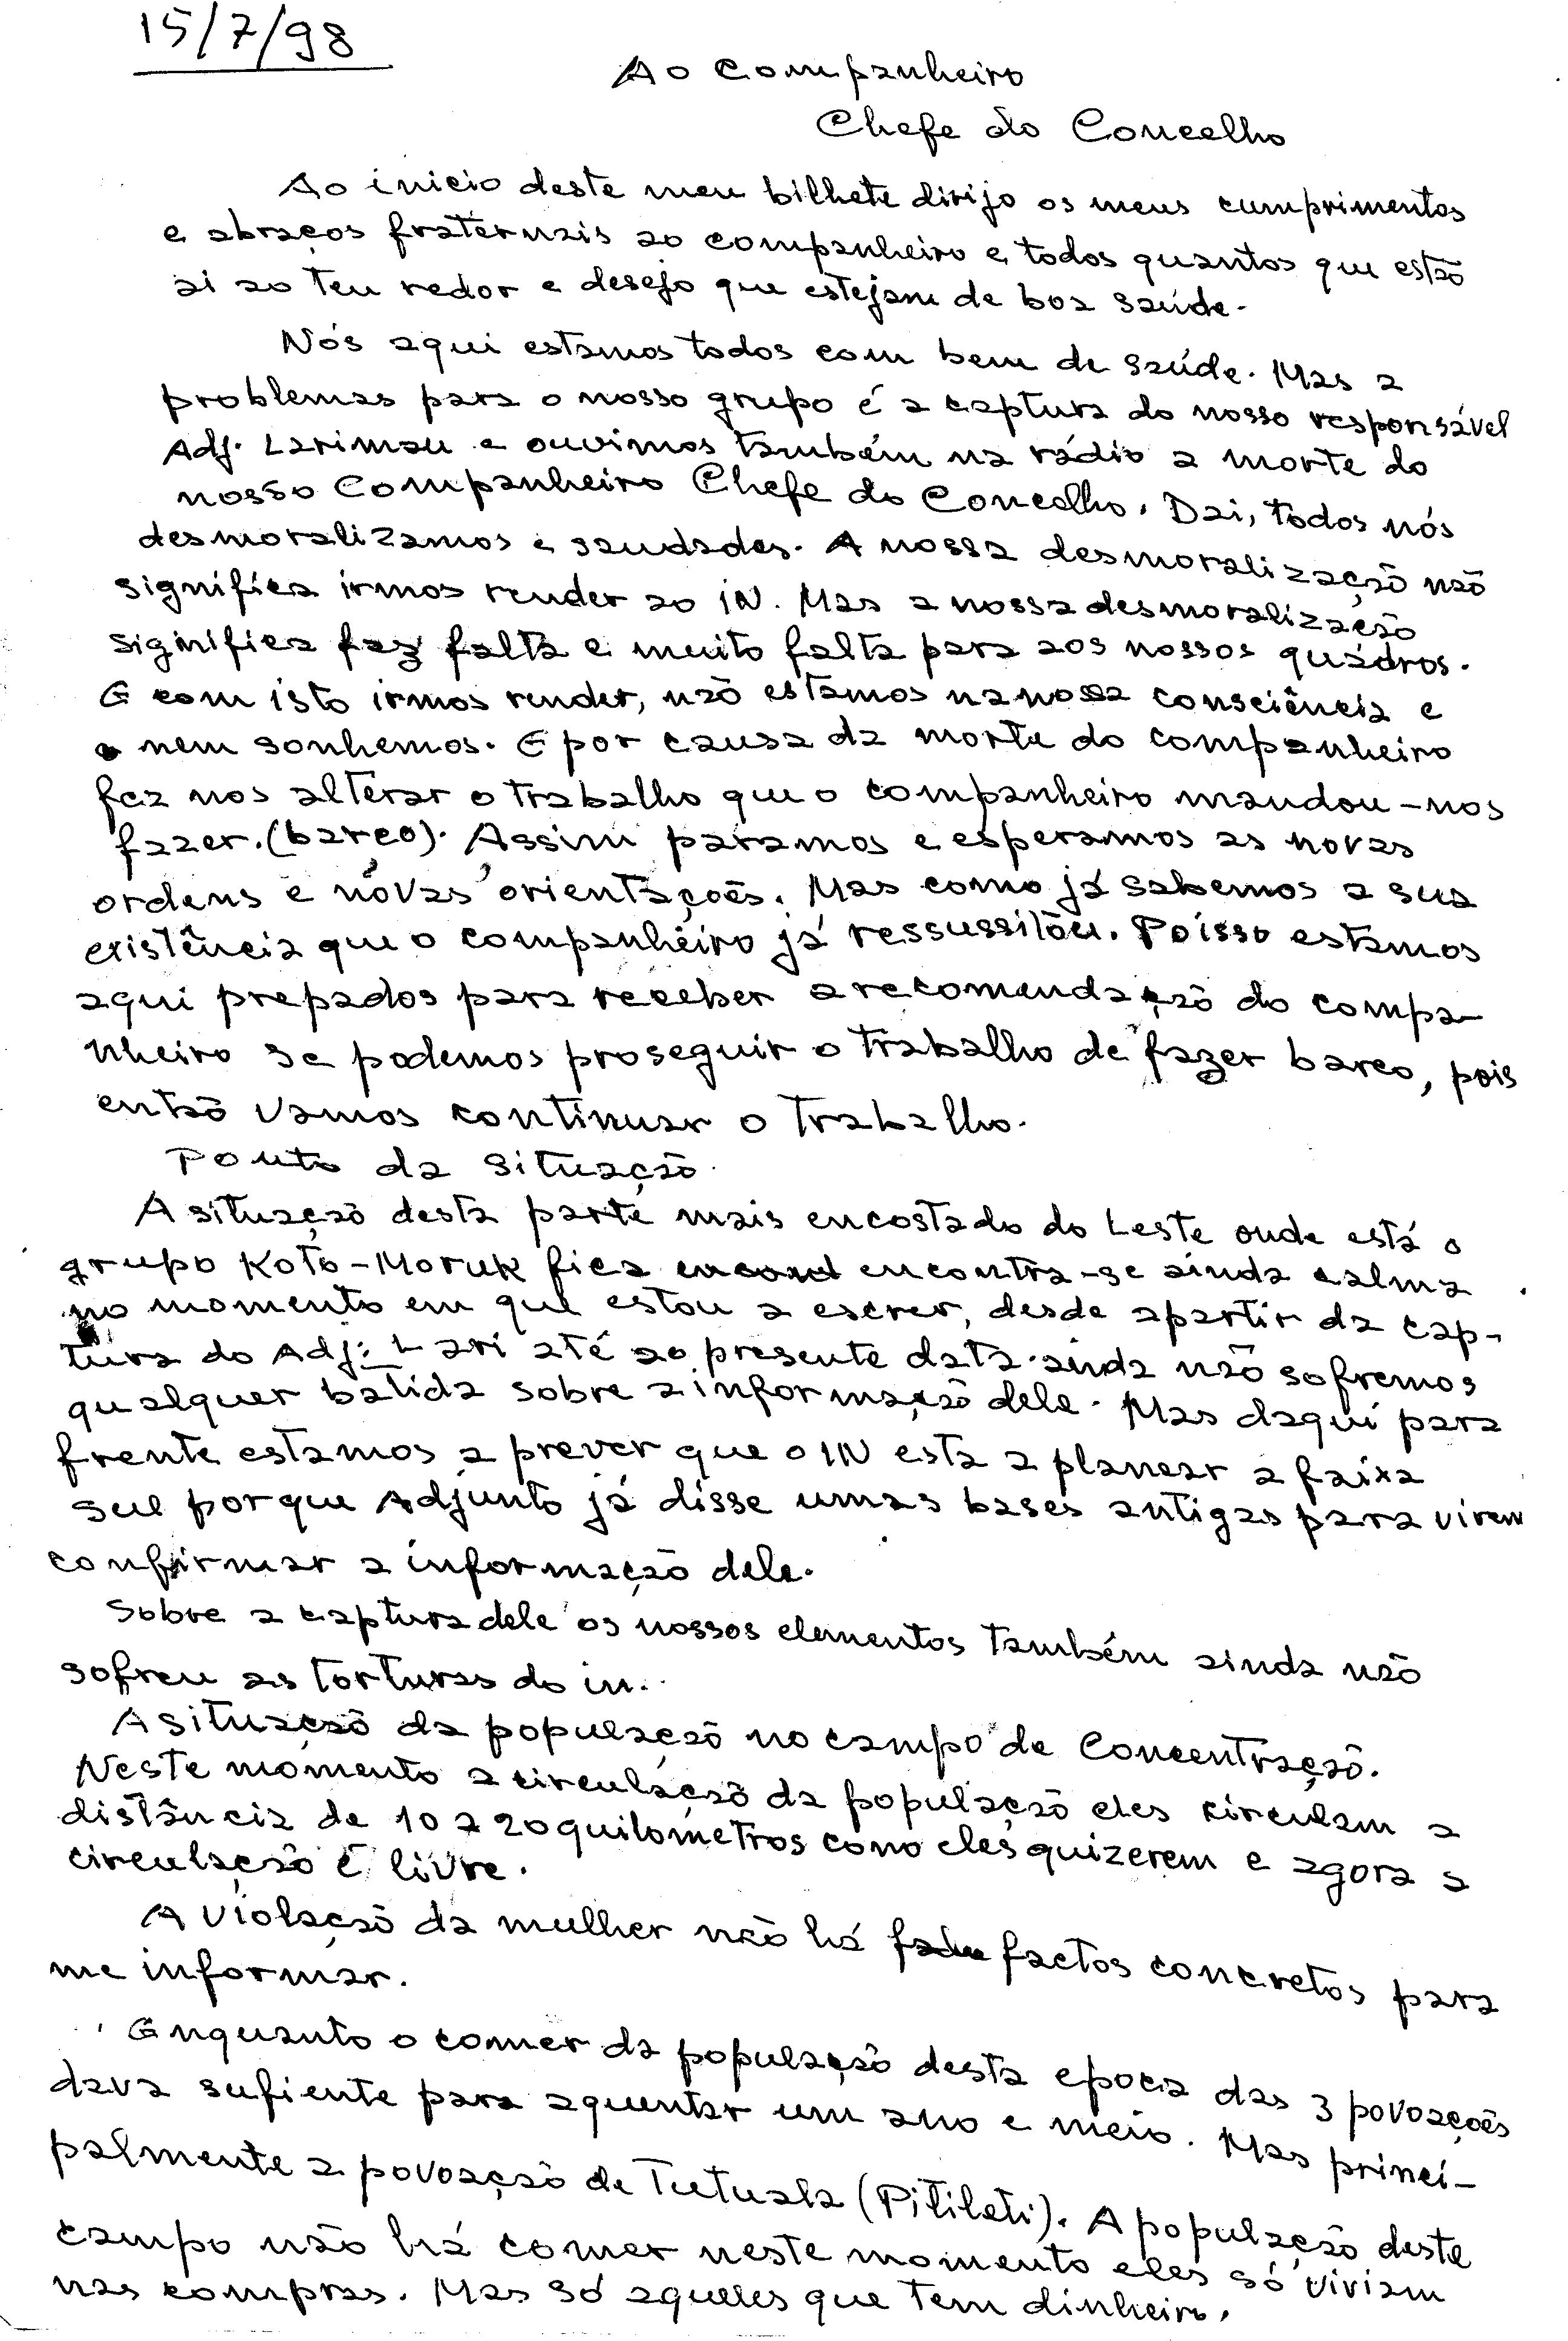 15/7/98
Ao Companheiro
Chefe do Concelho
Ao inicio deste meu bilhete dirijo os meus cumprimentos
e abraços fraternais ao companheiro e todos quantos que estão
ai ao teu redor e desejo que estejam de boa saúde.
Nós aqui estamos todos com bem de saúde. Mas a
problemas para o nosso grupo é a captura do nosso responsável
Adj. Larimau e ouvimos também na rádio a morte do
nosso Companheiro Chefe do Concelho. Dai, todos nós
desmoralizamos e saudades. A nossa desmoralização não
significa irmos render ao iN. Mas a nossa desmoralização
siginifica faz falta e muito falta para aos nossos quadros.
E com isto irmos render, não estamos na nossa consciência e
nem sonhemos. E por causa da morte do companheiro
faz nos alterar o trabalho que o companheiro mandou-nos
fazer. (barco). Assim paramos e esperamos as novas
ordens e novas orientações. Mas como já sabemos a sua
existência que o companheiro já ressussitou. Poisso estamos
aqui prepados para receber a recomendação do compa-
nheiro se podemos proseguir o trabalho de fazer barco, pois
então vamos continuar o trabalho.
Ponto da situação.
A situação desta parte mais encostado do Leste onde está o
grupo Koto-Moruk fica encontra-se ainda calma
no momento em que estou a escrer, desde apartir da cap-
tura do Adj: Lari até ao presente data ainda não sofremos
qualquer batida sobre a informação dele. Mas daqui para
frente estamos a prever que o IN esta a planear a faixa
sul porque Adjunto já disse umas bases antigas para virem
confirmar a informação dele.
Sobre a captura dele os nossos elementos também ainda não
sofreu as torturas do in..
A situação da população no campo de Concentração.
Neste momento a circulação da população eles circulam a
distância de 10 a 20 quilometros como eles quizerem e agora a
circulação é livre.
A violação da mulher não há factos concretos para
me informar.
Enquanto o comer da população desta epoca das 3 povoações
dava sufiente para aguentar um ano e meio. Mas princi-
palmente a povoação de Tutuala (Pitileti). A população deste
campo não há comer neste momento eles só viviam
nas compras. Mas só aqueles que tem dinheiro.